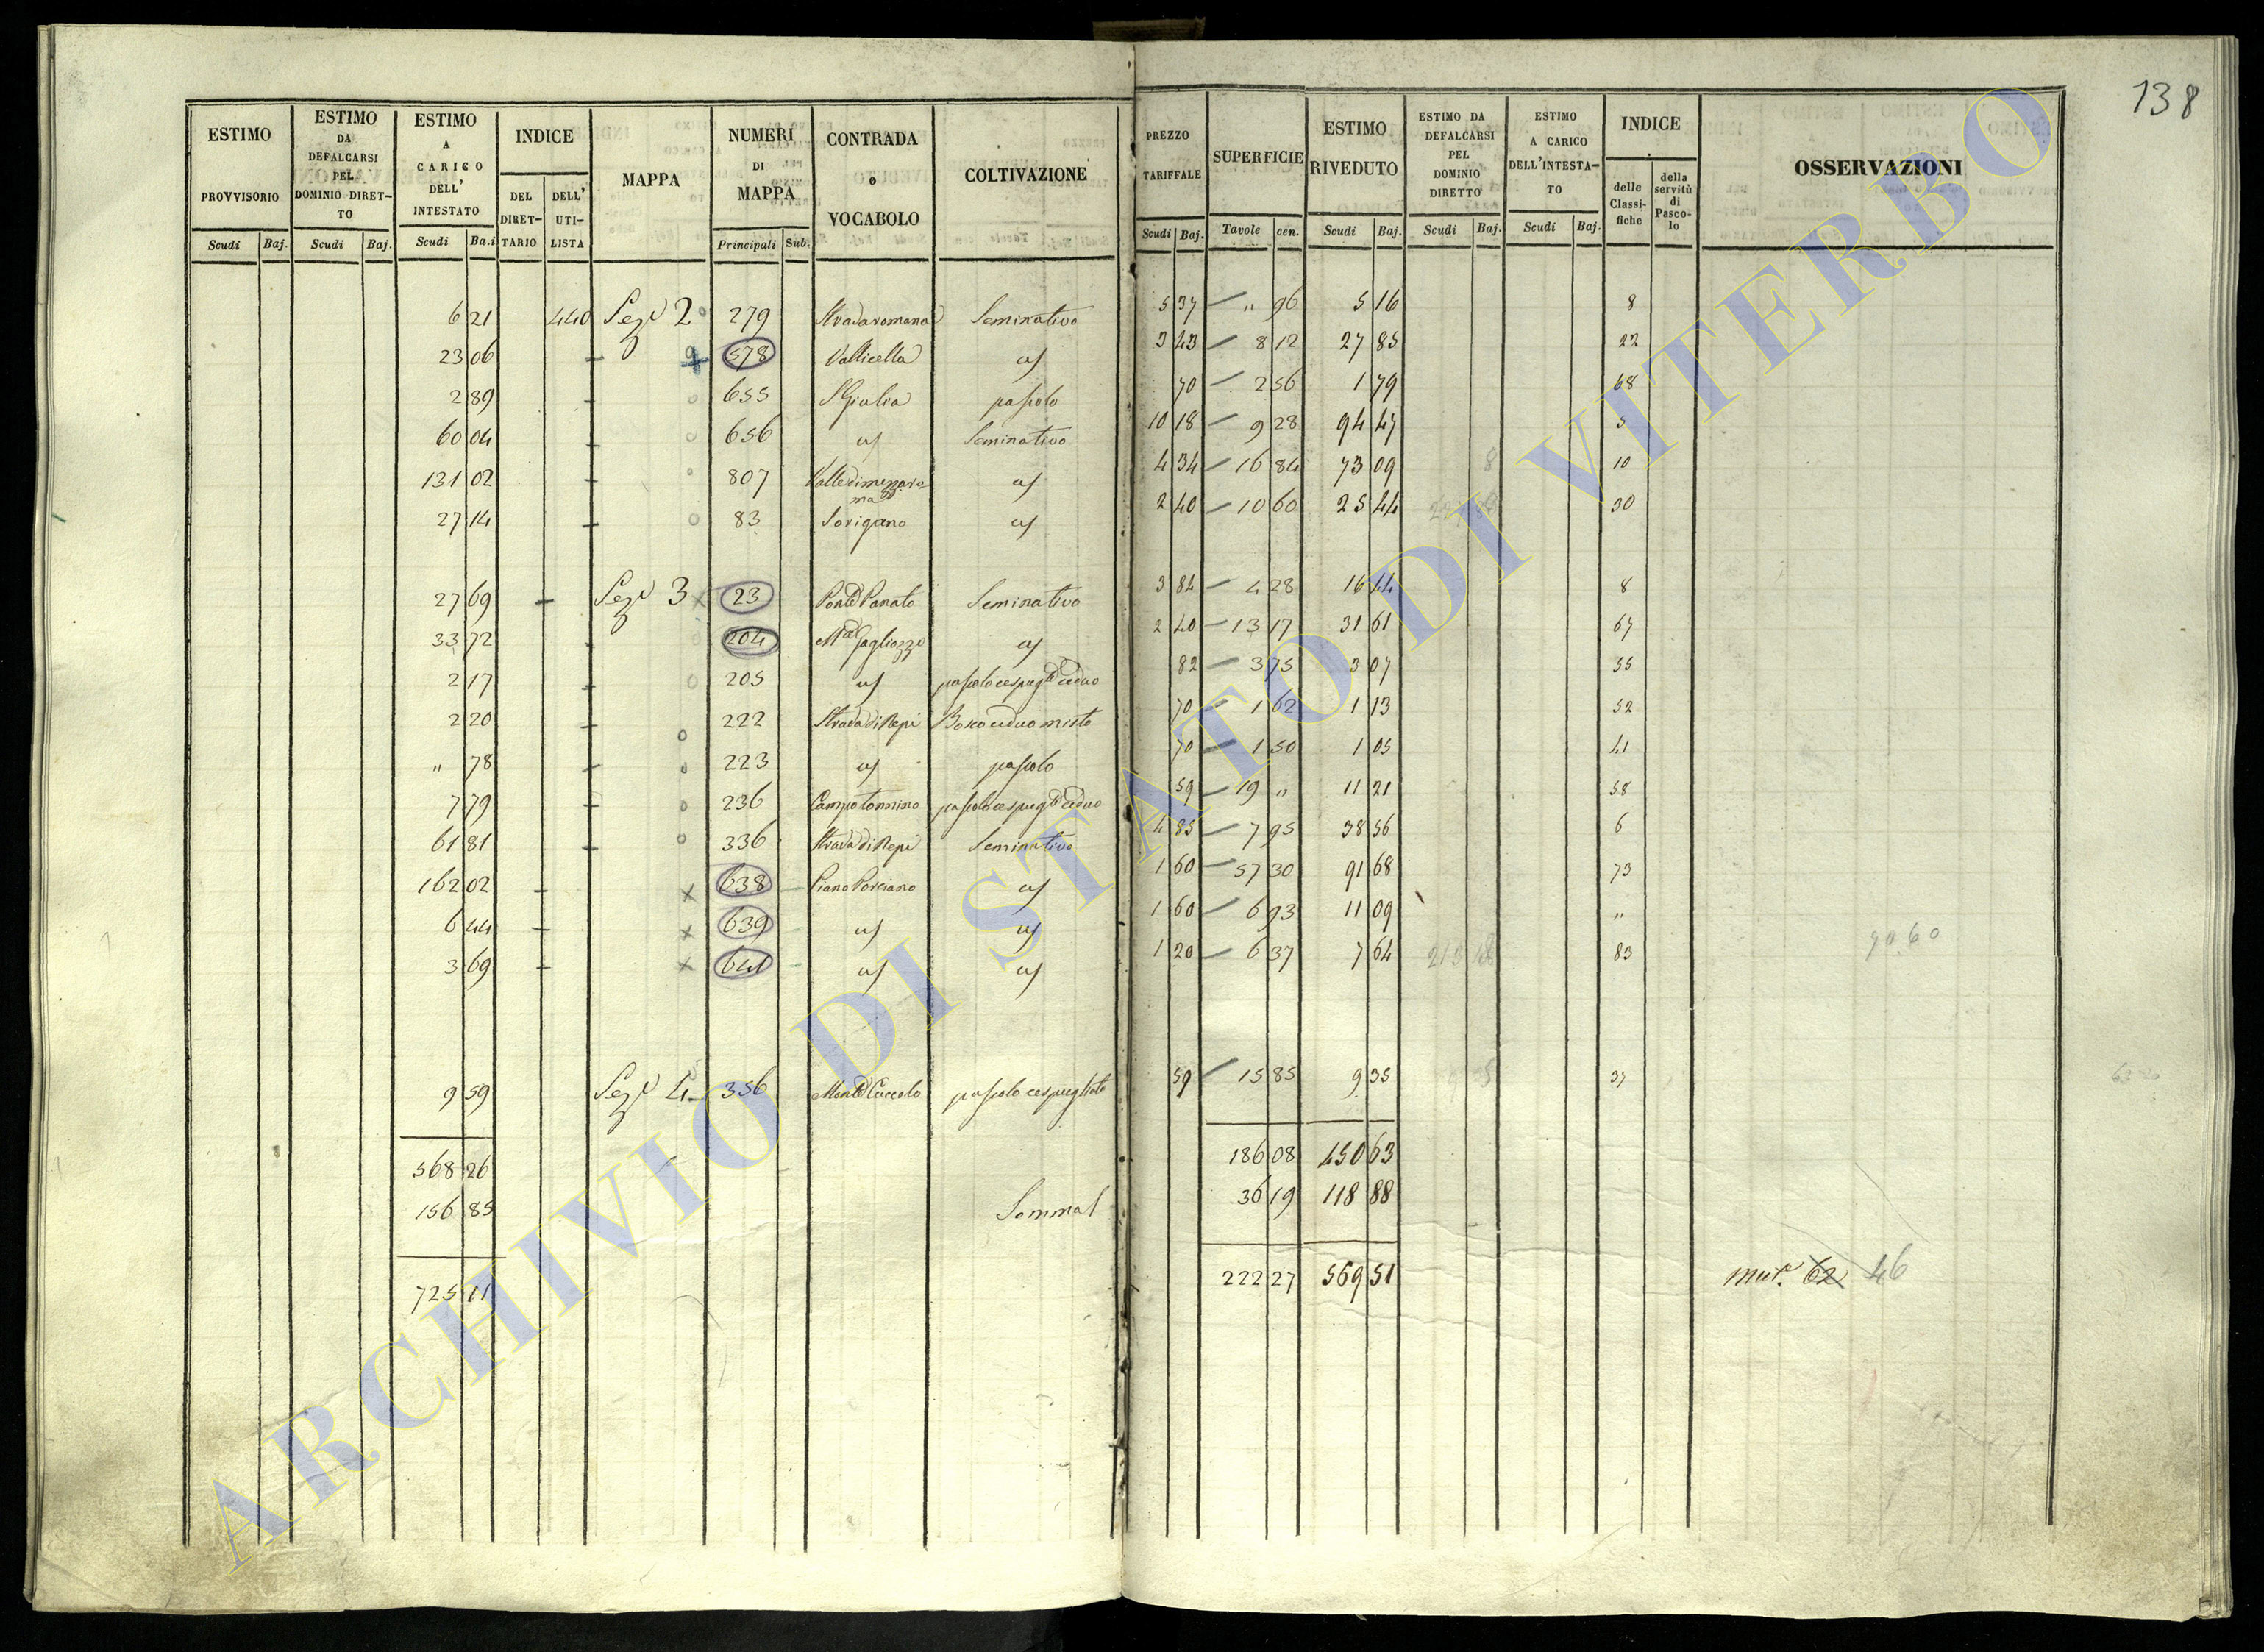 138
ESTIMO PROVVISORIO
ESTIMO DA DEFALCARSI PEL DOMINIO DIRET-TO
ESTIMO A CARICO DELL' INTESTATO
INDICE
DEL DIRET-TARIO
DELL' UTI-LISTA
MAPPA
NUMERI DI MAPPA
CONTRADA o VOCABOLO
COLTIVAZIONE
PREZZO TARIFFALE
SUPERFICIE
ESTIMO RIVEDUTO
ESTIMO DA DEFALCARSI PEL DOMINIO DIRETTO
ESTIMO A CARICO DELL'INTESTA-TO
INDICE
delle Classi-fiche
della servitù di Pasco-lo
OSSERVAZIONI
Scudi Baj. Scudi Baj. Scudi Ba.i Principali Sub. Scudi Baj. Tavole cen. Scudi Baj. Scudi Baj. Scudi Baj.
6 21 440 Sez.e 2 279 Strada romana Seminativo 5 37 — " 96 5 16 8
23 06 — 578 Vallicella 3 43 — 8 12 27 85 22
2 89 — 655 S Giulia pascolo 70 — 2 56 1 79 68
60 04 — 656 Seminativo 10 18 — 9 28 94 47 5
131 02 — 807 4 34 — 16 84 73 09 10
27 14 — 83 Sorigano 2 40 — 10 60 25 44 30
27 69 — Sez.e 3 23 Ponte Panato Seminativo 3 84 — 4 28 16 44 8
33 72 — 204 2 40 — 13 17 31 61 67
2 17 — 205 82 — 3 75 3 07 55
2 20 — 222 Strada di Repi Bosco ceduo misto 70 — 1 62 1 13 52
" 78 — 223 pascolo 70 — 1 50 1 05 41
7 79 — 236 Campo tonnino 59 — 19 " 11 21 58
61 81 — 336 Strada di Repi Seminativo 4 85 — 7 95 38 56 6
162 02 — x 638 Piano Porciano 1 60 — 57 30 91 68 73
6 44 — x 639 1 60 — 6 93 11 09 "
3 69 — x 641 1 20 — 6 37 7 64 83
90.60
9 59 Sez.e 4 356 Monte Cuccolo pascolo cespugliato 59 — 15 85 9 35 37
568 26 186 08 450 63
156 85 Somma 36 19 118 88
725 11 222 27 569 51
mut. 62 46
ARCHIVIO DI STATO DI VITERBO